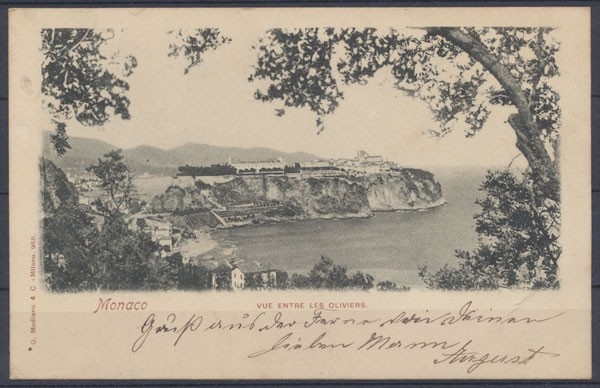 Monaco
VUE ENTRE LES OLIVIERS.
* G. Modiano & C. - Milano. 958.
Gruß aus der Ferne von Deinem
lieben Mann
August